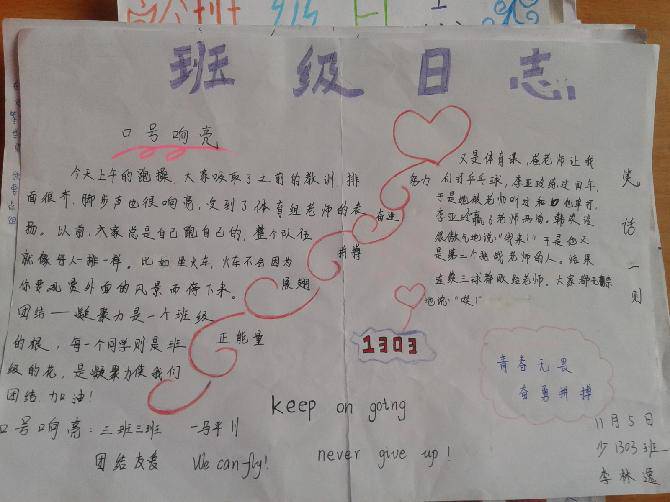 班级日志
口号响亮
今天上午的跑操,大家吸取了之前的教训,排
面很齐,脚步声也很响亮,受到了体育组老师的表
扬。以前,大家总是自己跑自己的,整个队伍
就像
一样。比如坐火车,火车不会因为
你要观赏外面的风景而停下来。
团结——凝聚力是一个班级
的根,每一个同学则是班
级的花,是凝聚力使我们
团结 加油!
口号响亮:三班三班 一马平川
团结友爱 We can fly!
努力
奋进
拼搏
展翅
正能量
1303
keep on going
never give up!
笑话一则
又是体育课,
老师让我
们打乒乓球,李亚玲
于是他被老师叫过
和他单打。
李亚玲
老师两场,韩
傲气地说:"我来!"于是他又
是第二个挑战老师的人。结果
连赢三球
老师。大家都无
地说:"哎!"
青春无畏
奋勇拼搏
11月5日
少1303班
李林逸